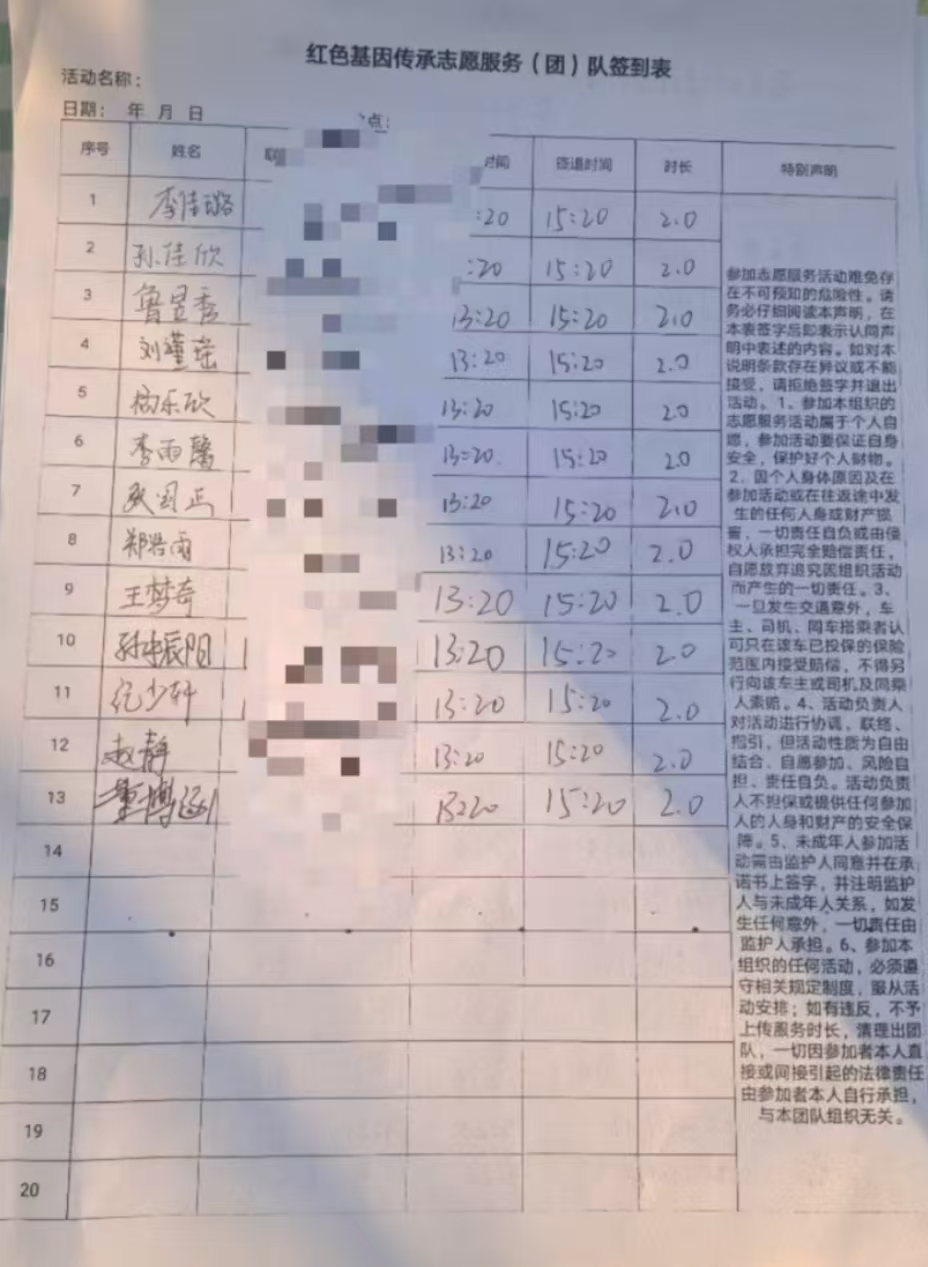 红色基因传承志愿服务（团）队签到表
活动名称：
日期： 年 月 日 点：
序号 姓名 时间 签退时间 时长 特别声明
1 李佳璐 :20 15:20 2.0
2 孙佳欣 :20 15:20 2.0
3 鲁昱秀 13:20 15:20 2.0
4 刘瑾瑶 13:20 15:20 2.0
5 乐欣 13:20 15:20 2.0
6 李雨馨 13:20 15:20 2.0
7 国正 13:20 15:20 2.0
8 郑浩雨 13:20 15:20 2.0
9 王梦奇 13:20 15:20 2.0
10 辰阳 13:20 15:20 2.0
11 纪少轩 13:20 15:20 2.0
12 赵静 13:20 15:20 2.0
13 董博 13:20 15:20 2.0
14
15
16
17
18
19
20
参加志愿服务活动难免存
在不可预知的危险性。请
务必仔细阅读本声明，在
本表签字后即表示认同声
明中表述的内容。如对本
说明条款存在异议或不能
接受，请拒绝签字并退出
活动。1、参加本组织的
志愿服务活动属于个人自
愿，参加活动要保证自身
安全，保护好个人财物。
2、因个人身体原因及在
参加活动或在往返途中发
生的任何人身或财产损
害、一切责任自负或由侵
权人承担完全赔偿责任，
自愿放弃追究因组织活动
而产生的一切责任。3、
一旦发生交通意外，车
主、司机、同车搭乘者认
可只在该车已投保的保险
范围内接受赔偿，不得另
行向该车主或司机及同乘
人索赔。4、活动负责人
对活动进行协调、联络、
指引，但活动性质为自由
结合、自愿参加、风险自
担、责任自负。活动负责
人不担保或提供任何参加
人的人身和财产的安全保
障。5、未成年人参加活
动需由监护人同意并在承
诺书上签字，并注明监护
人与未成年人关系，如发
生任何意外，一切责任由
监护人承担。6、参加本
组织的任何活动，必须遵
守相关规定制度，服从活
动安排；如有违反，不予
上传服务时长，清理出团
队，一切因参加者本人直
接或间接引起的法律责任
由参加者本人自行承担，
与本团队组织无关。